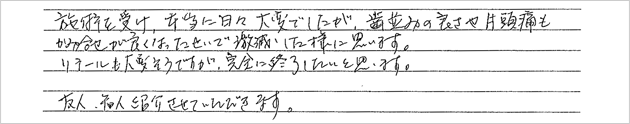 施術を受け、本当に日々大変でしたが、歯並みの良さや片頭痛も
かみ合せが良くなったせいで激減した様に思います。
リテールも大変そうですが、完全に終了したいと思います。
友人、知人紹介させていただきます。